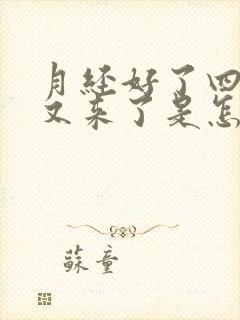 月经好了四
又来了是怎
蘇童